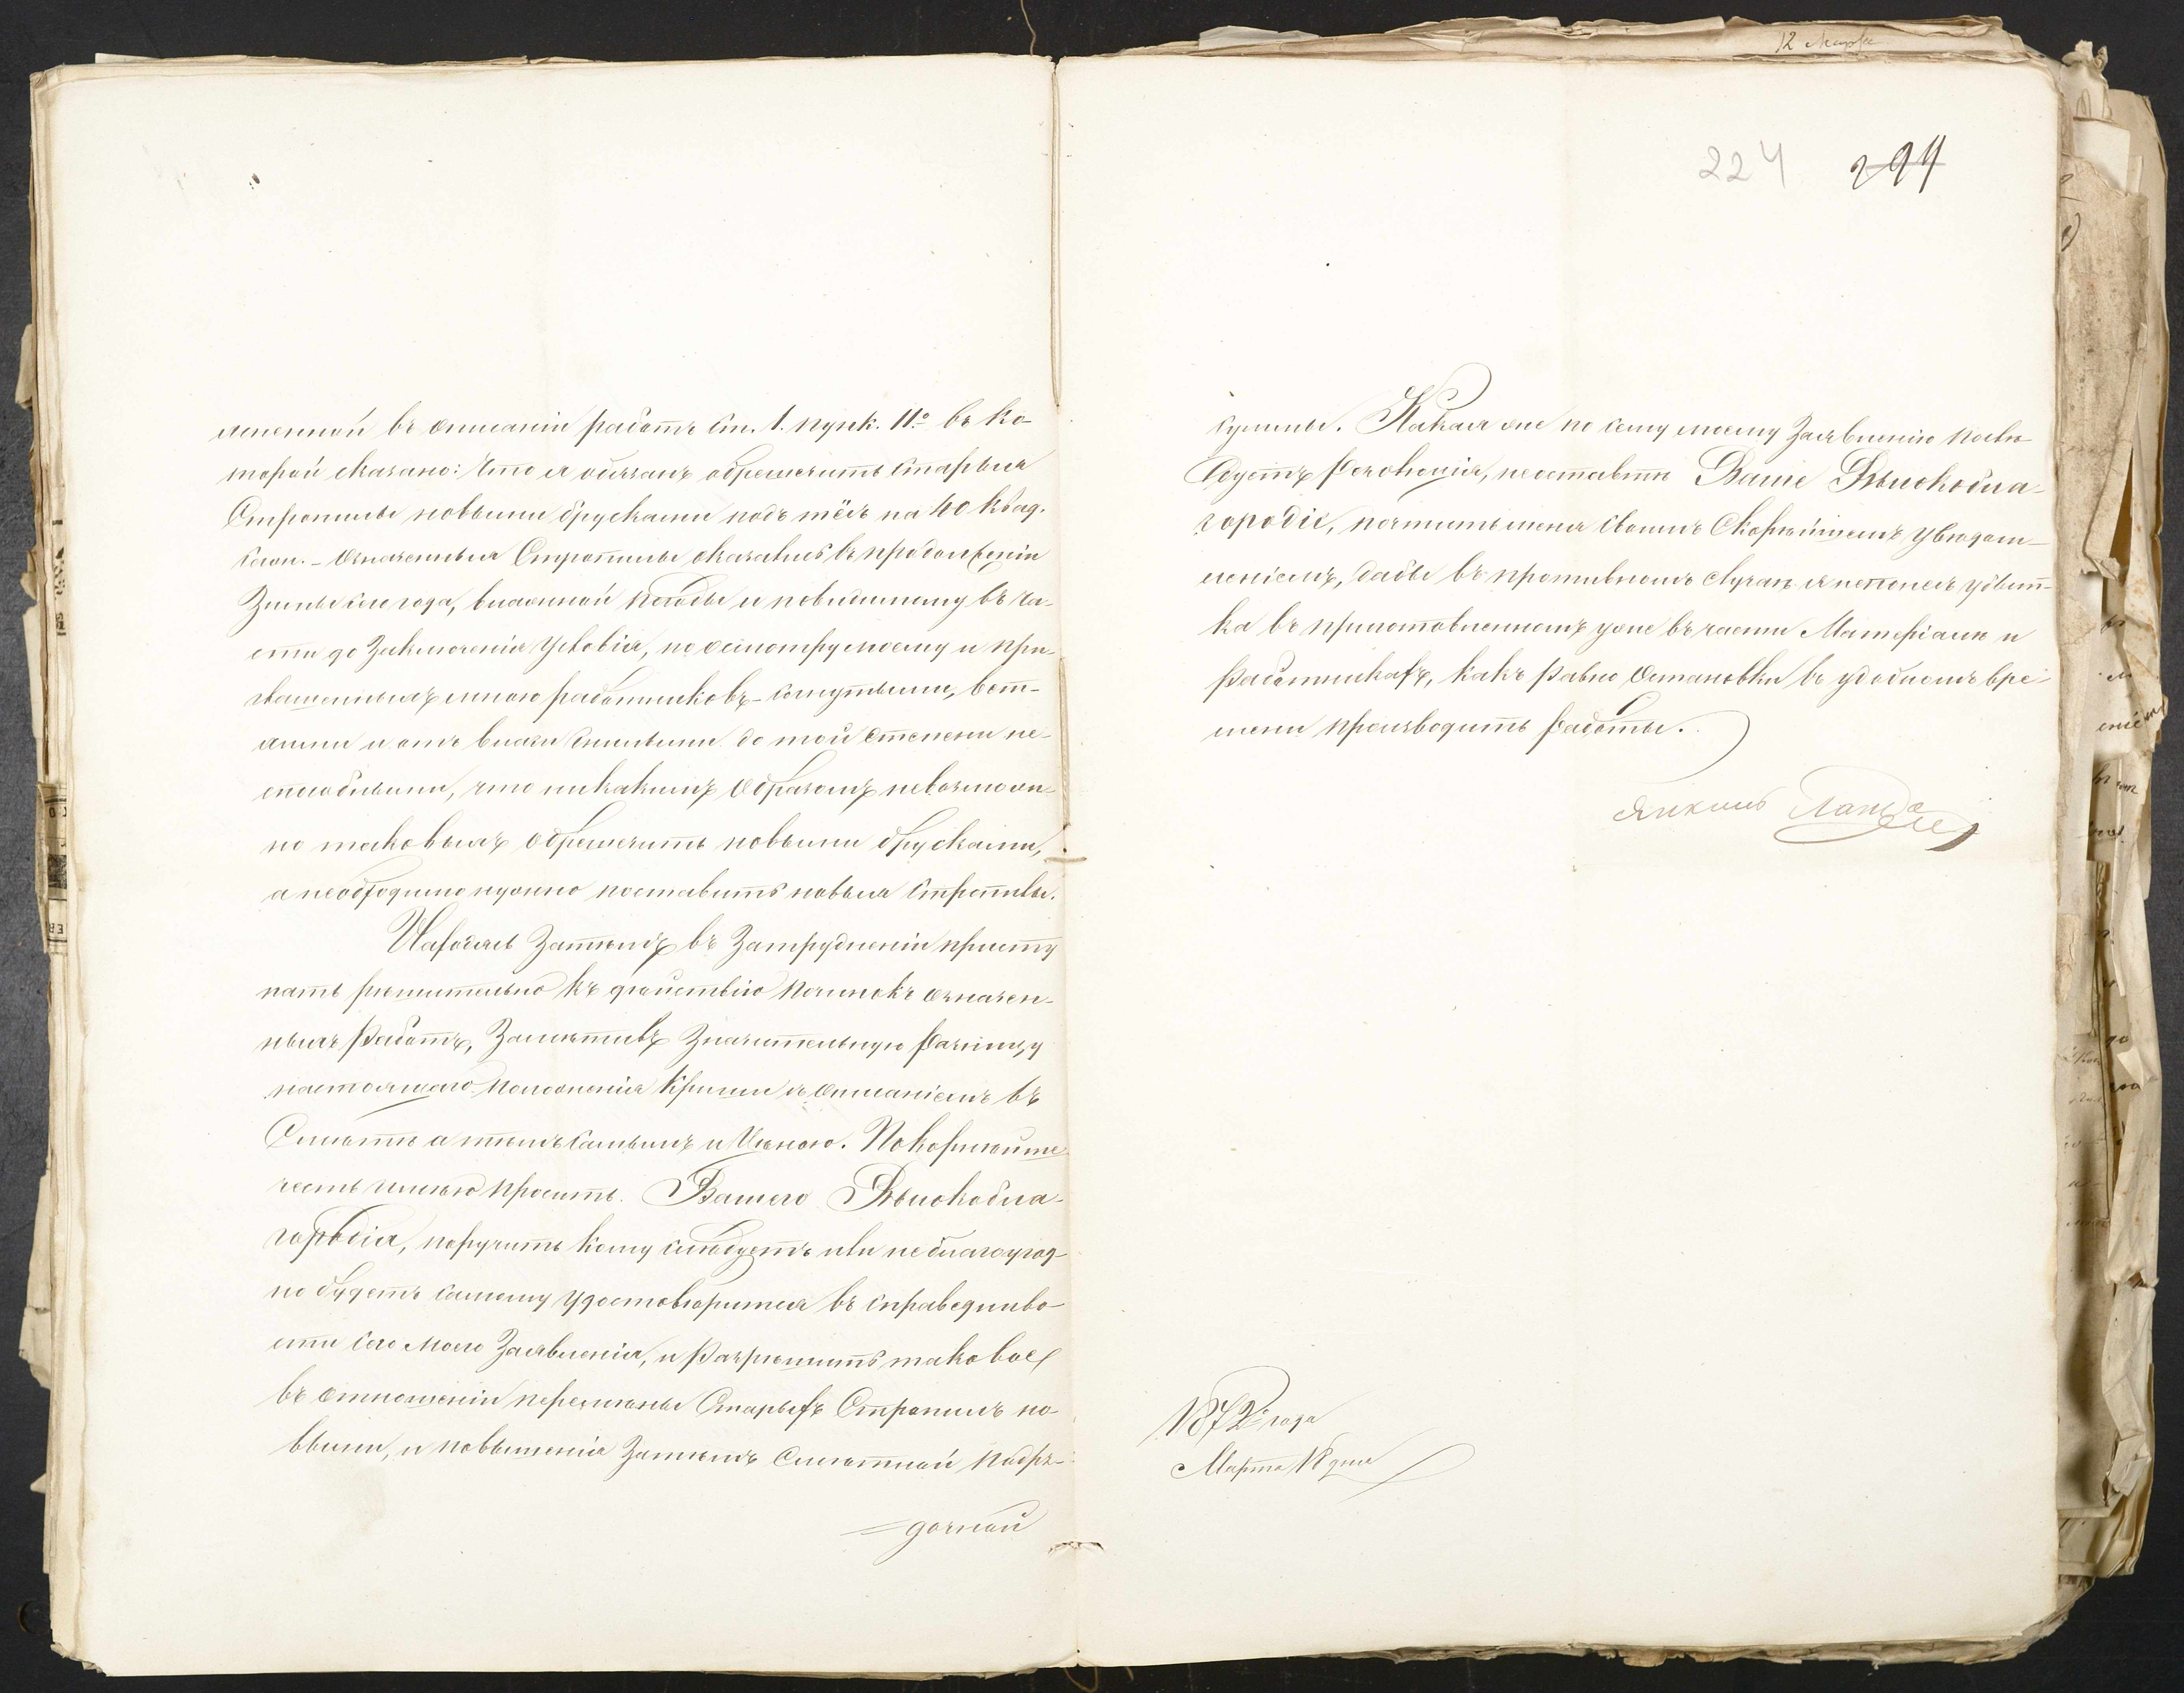 12 Марта
224 294
мененной въ описаніи работъ ст. 1. пунк. 11º въ ко-
торой сказано: Что я обязанъ обрешечить старыя
Стропилы новыми брусками подъ тёсъ на 40 квад.
саж. - Означенныя Стропилы оказались въ продолженіи
Зимы сего года, влажной погоды и повидимому въ ча-
сти до Заключенія Условія, по осмотру моему и при-
глашенныхъ мною работниковъ - согнутыми, вет-
хими и отъ влаги гнилыми до той степени не-
способными, что никакимъ образомъ невозмож-
но таковыхъ обрешечить новыми брусками,
а необходимо нужно поставить новыя стропилы.
Находясь Затемъ въ Затрудненіи присту
пать решительно къ действію починокъ означен-
ныхъ Работъ, Заметивъ Значительную разницу
настоящаго положенія Крыши съ описаніемъ въ
Смѣте а темъ самымъ и Ценою. Покорнейше
честь имею просить Вашего Высокобла-
городія, поручить кому следуетъ или неблагоугод-
но будетъ самому удостоверится въ справедливо-
сти сего моего Заявленія, и Разрешить таковое
въ отношеніи перемены Старыхъ Стропилъ но-
выми, и повышенія Затемъ Сметной Подря-
=дочной
суммы. Какая же по сему моему Заявленію после-
дуетъ Резолюція, неоставить Ваше Высокобла-
городіе, почтить меня своимъ Скорейшемъ уведом-
леніемъ, дабы въ противномъ случае я непонесъ убыт-
ка въ приготовленномъ уже въ части Матеріале и
Работникахъ, какъ равно Остановки въ удобномъ вре-
мени производить работы.
Янкель Ландо
1872 года
Марта 18 дня